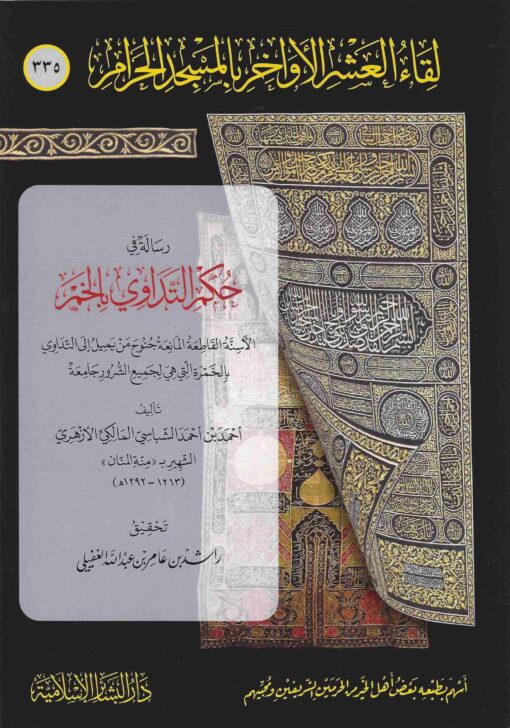 لِقَاءُ العَشْرِ الأَوَاخِرِ بِالمَسْجِدِ الحَرَامِ
٣٣٥
رِسَالَةٌ فِي
حُكْمِ التَّدَاوِي بِالخَمْرِ
الأَسِنَّةُ القَاطِعَةُ المَانِعَةُ جُنُوحَ مَنْ يَمِيلُ إِلَى التَّدَاوِي
بِالخَمْرَةِ الَّتِي هِيَ لِجَمِيعِ الشُّرُورِ جَامِعَةٌ
تَأْلِيفُ
أَحْمَدَ بْنِ أَحْمَدَ الشَّبَاسِيِّ المَالِكِيِّ الأَزْهَرِيِّ
الشَّهِيرِ بِـ «مِنَّةِ المَنَّانِ»
(١٢١٣ - ١٢٩٢هـ)
تَحْقِيقُ
رَاشِد بن عَامِر بن عَبْد اللّه الغفيلي
أَسْهَمَ بِطَبْعِهِ بَعْضُ أَهْلِ الخَيْرِ مِنَ الحَرَمَيْنِ الشَّرِيفَيْنِ وَمُحِبِّيهِم
دَارُ البَشَائِرِ الإِسْلَامِيَّةِ